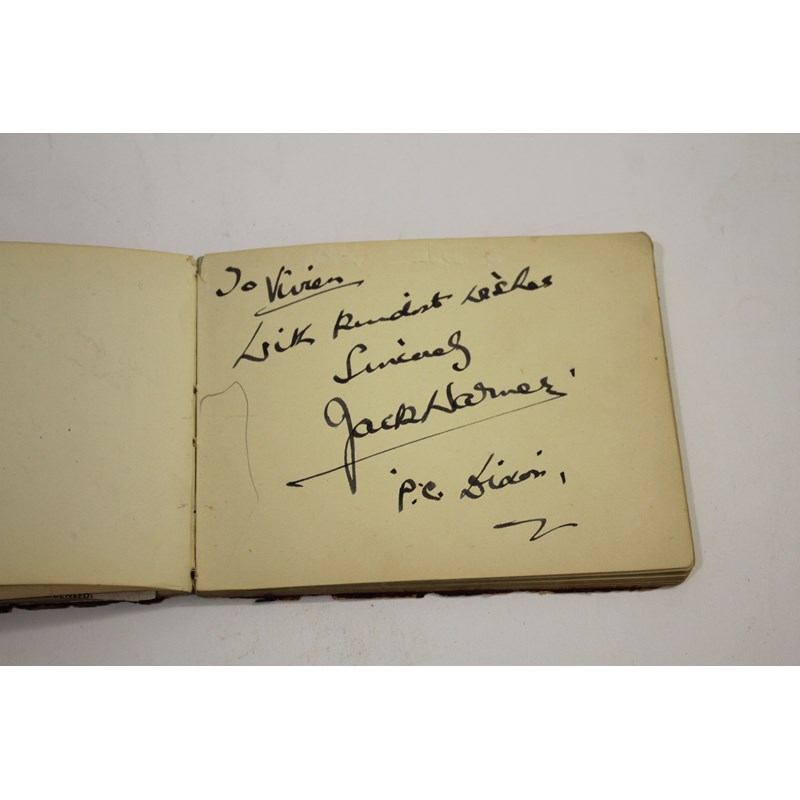 To Vivien
With kindest wishes
Sincerely
Jack Warner.
'P.C. Dixon,